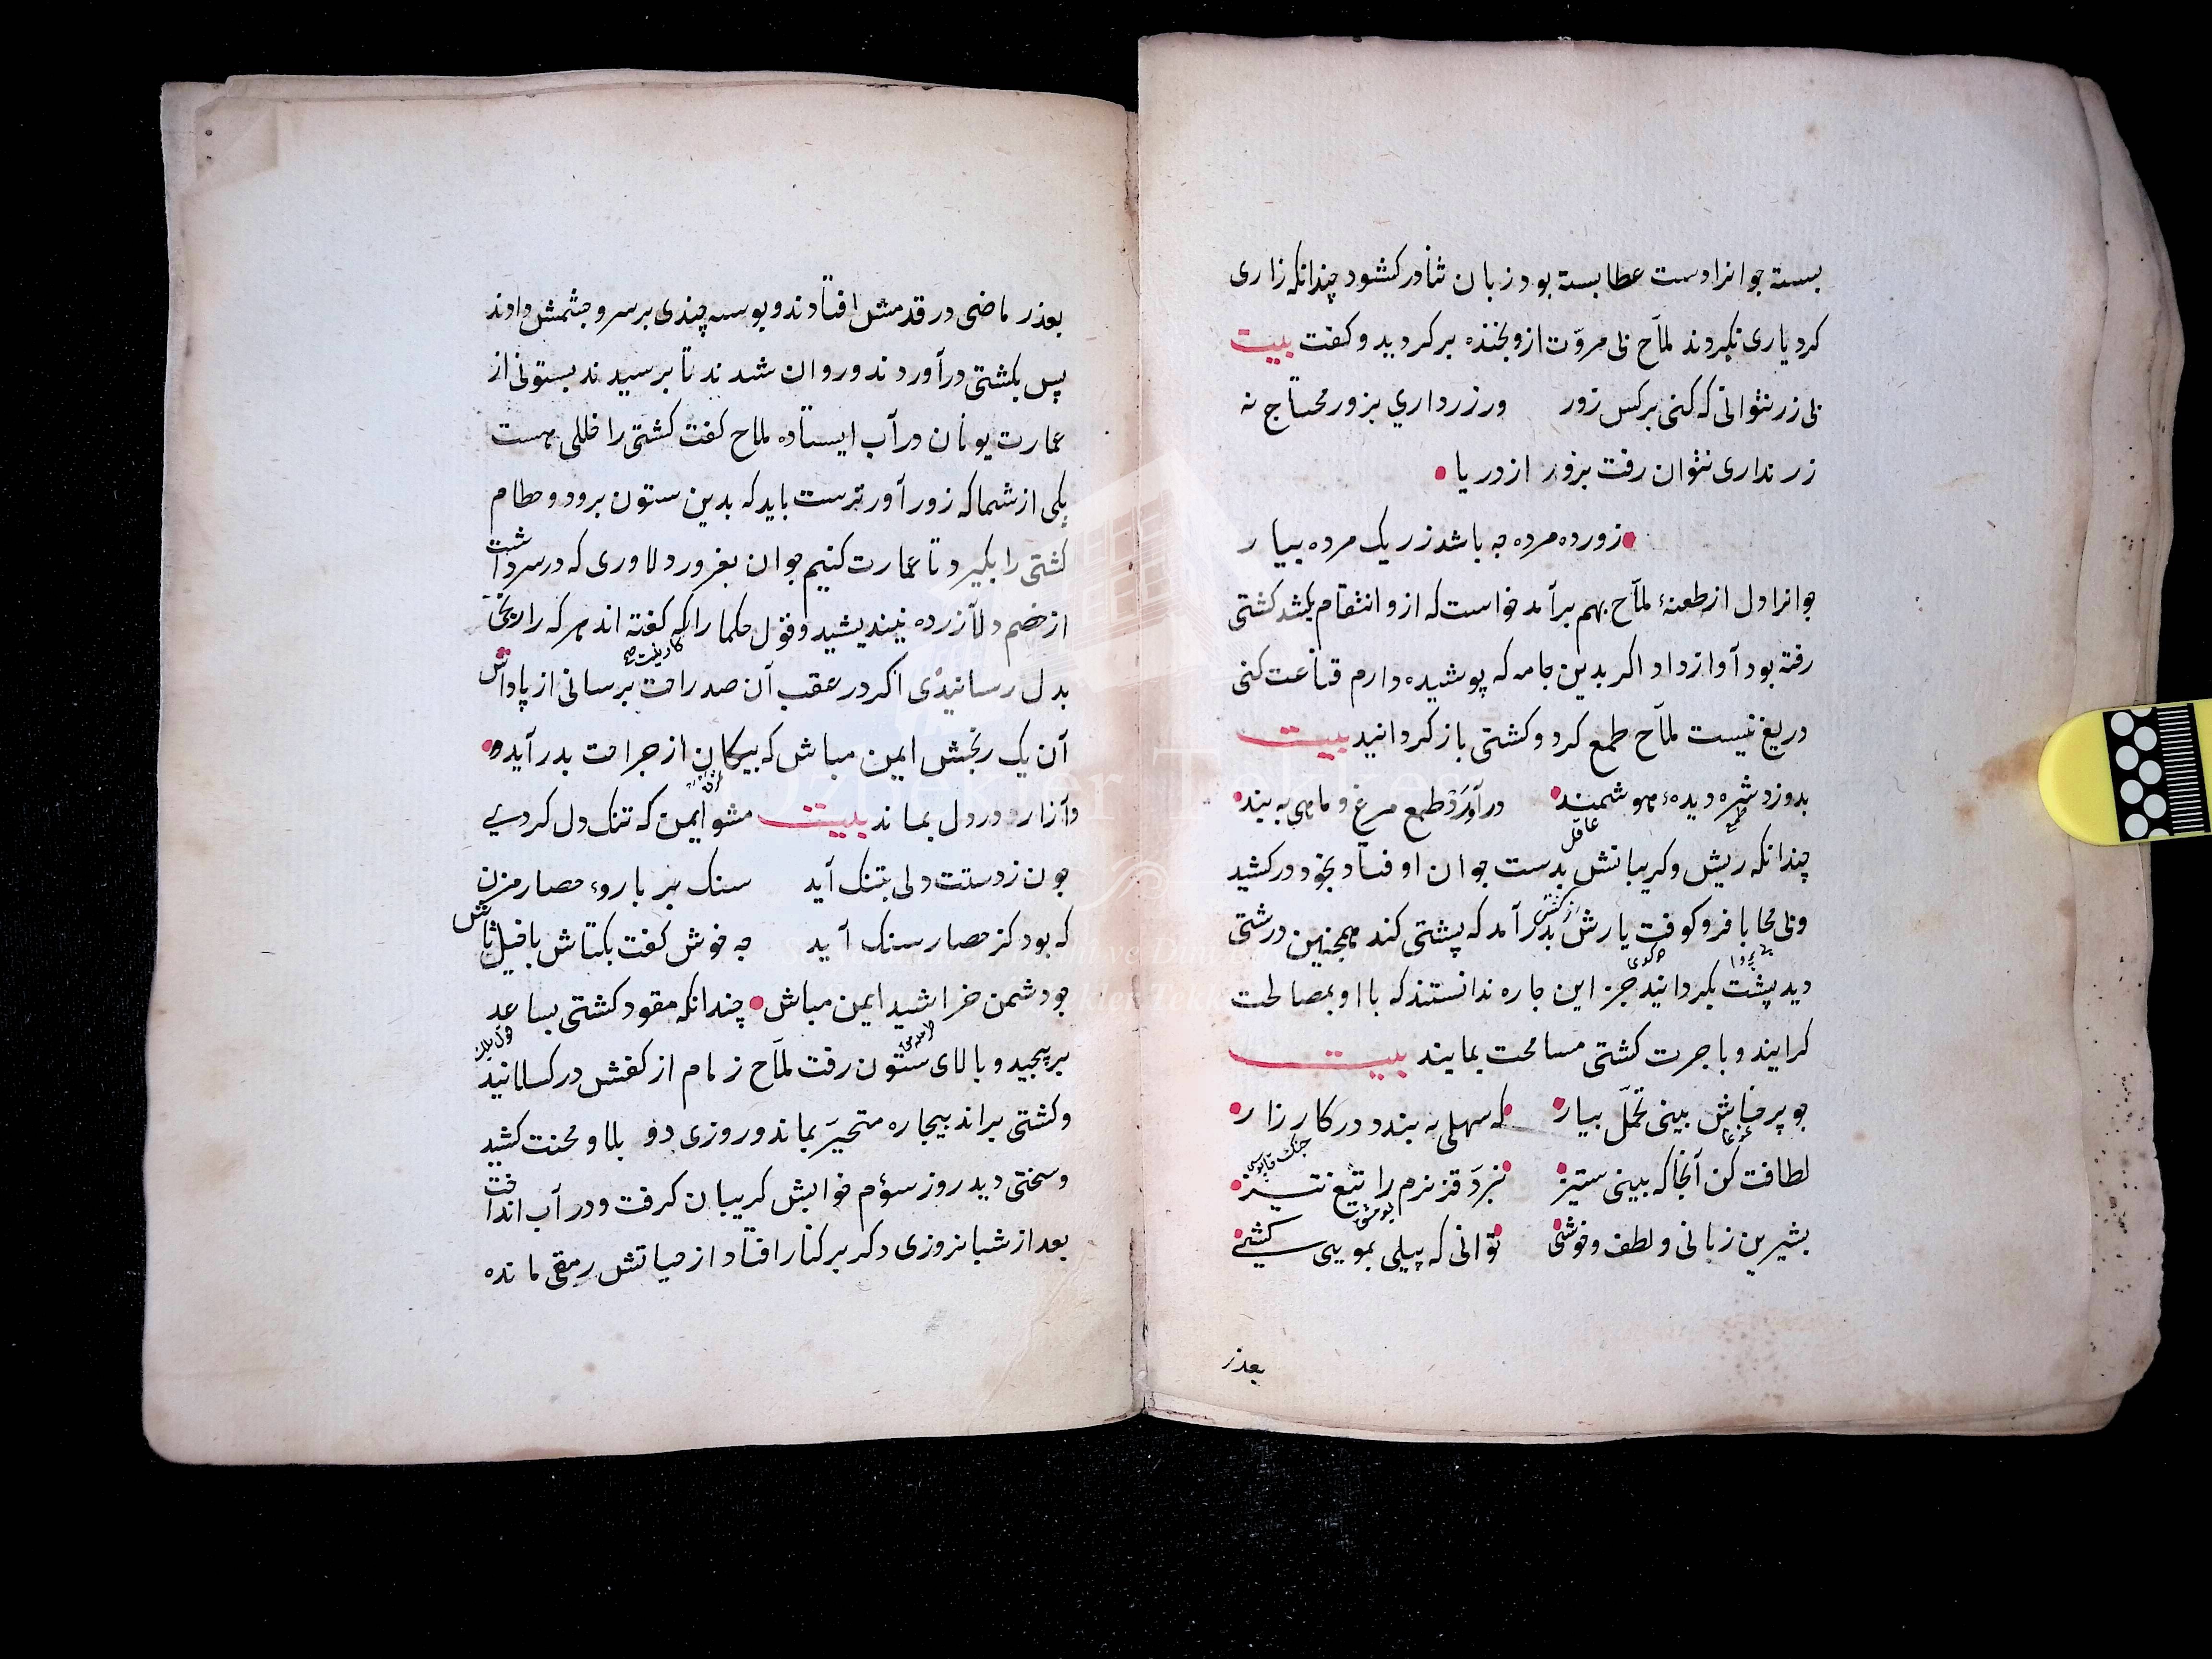 بسته جوانرا دست عطا بسته بود زبان ثنا در کشود چندانکه زاری
کرد یاری نکردند ملاّح بی مروّت ازو بخنده برکردید و کفت بیت
بی زر نتوانی که کنی برکس زور ورزر داری بزور محتاج نه
زر نداری نتوان رفت بزور از دریا
زور ده مرده چه باشد زر یک مرده بیار
جوانرا دل از طعنهٔ ملاّح بهم برآمد خواست که ازو انتقام بکشد کشتی
رفته بود آواز داد اکر بدین جامه که پوشیده دارم قناعت کنی
دریغ نیست ملاّح طمع کرد و کشتی باز کردانید بیت
بدوزد شره دیدهٔ هوشمند درآورد طمع مرغ و ماهی به بیند
طمع عاقل
چندانکه ریش و کریبانش بدست جوان افتاد بخود در کشید
وبی محابا فرو کوفت یارش بدر آمد که پشتی کند همچنین درشتی
دید پشت بکردانید جز این چاره ندانستند که با او بمصالحت
کرایند و باجرت کشتی مسامحت نمایند بیت
چو پرخاش بینی تحمّل بیار که سهلی به بندد در کارزار
غوغا
لطافت کن آنجا که بینی ستیز نبرد قز نرم را تیغ تیز
بشیرین زبانی و لطف و خوشی توانی که پیلی بمویی کشی
بعذر
بعذر ماضی در قدمش افتادند و بوسه چندی برسر و چشمش دادند
پس بکشتی درآوردند و روان شدند تا برسیدند بستونی از
عمارت یونان در آب ایستاده ملاح کفت کشتی را خللی هست
یکی از شما که زورآورترست باید که بدین ستون برود و خطام
کشتی را بکیرد تا عمارت کنیم جوان بغرور دلاوری که در سر داشت
از خصم دل آزرده نیندیشید و قول حکما را که کفته اند هرکه را رنجی
بدل رسانیدی اکر در عقب آن صد راحت برسانی از پاداش
آن یک رنجش ایمن مباش که پیکان از جراحت بدر آید و
وآزار در دل بماند بیت مشو ایمن که تنک دل کردی
چون ز دستت دلی بتنک آید سنک بر بارهٔ حصار مزن
که بود کز حصار سنک آید چه خوش کفت بکتاش با خیل تاش
چو دشمن خراشید ایمن مباش چندانکه مقود کشتی بساعد
برپیچید و بالای ستون رفت ملاّح زمام از کفش در کسلانید
وکشتی براند بیچاره متحیّر بماند و روزی دو بلا و محنت کشید
وسختی دید روز سوم خوابش کریبان کرفت و در آب انداخت
بعد از شبانروزی دکر بر کنار افتاد از حیاتش رمقی مانده